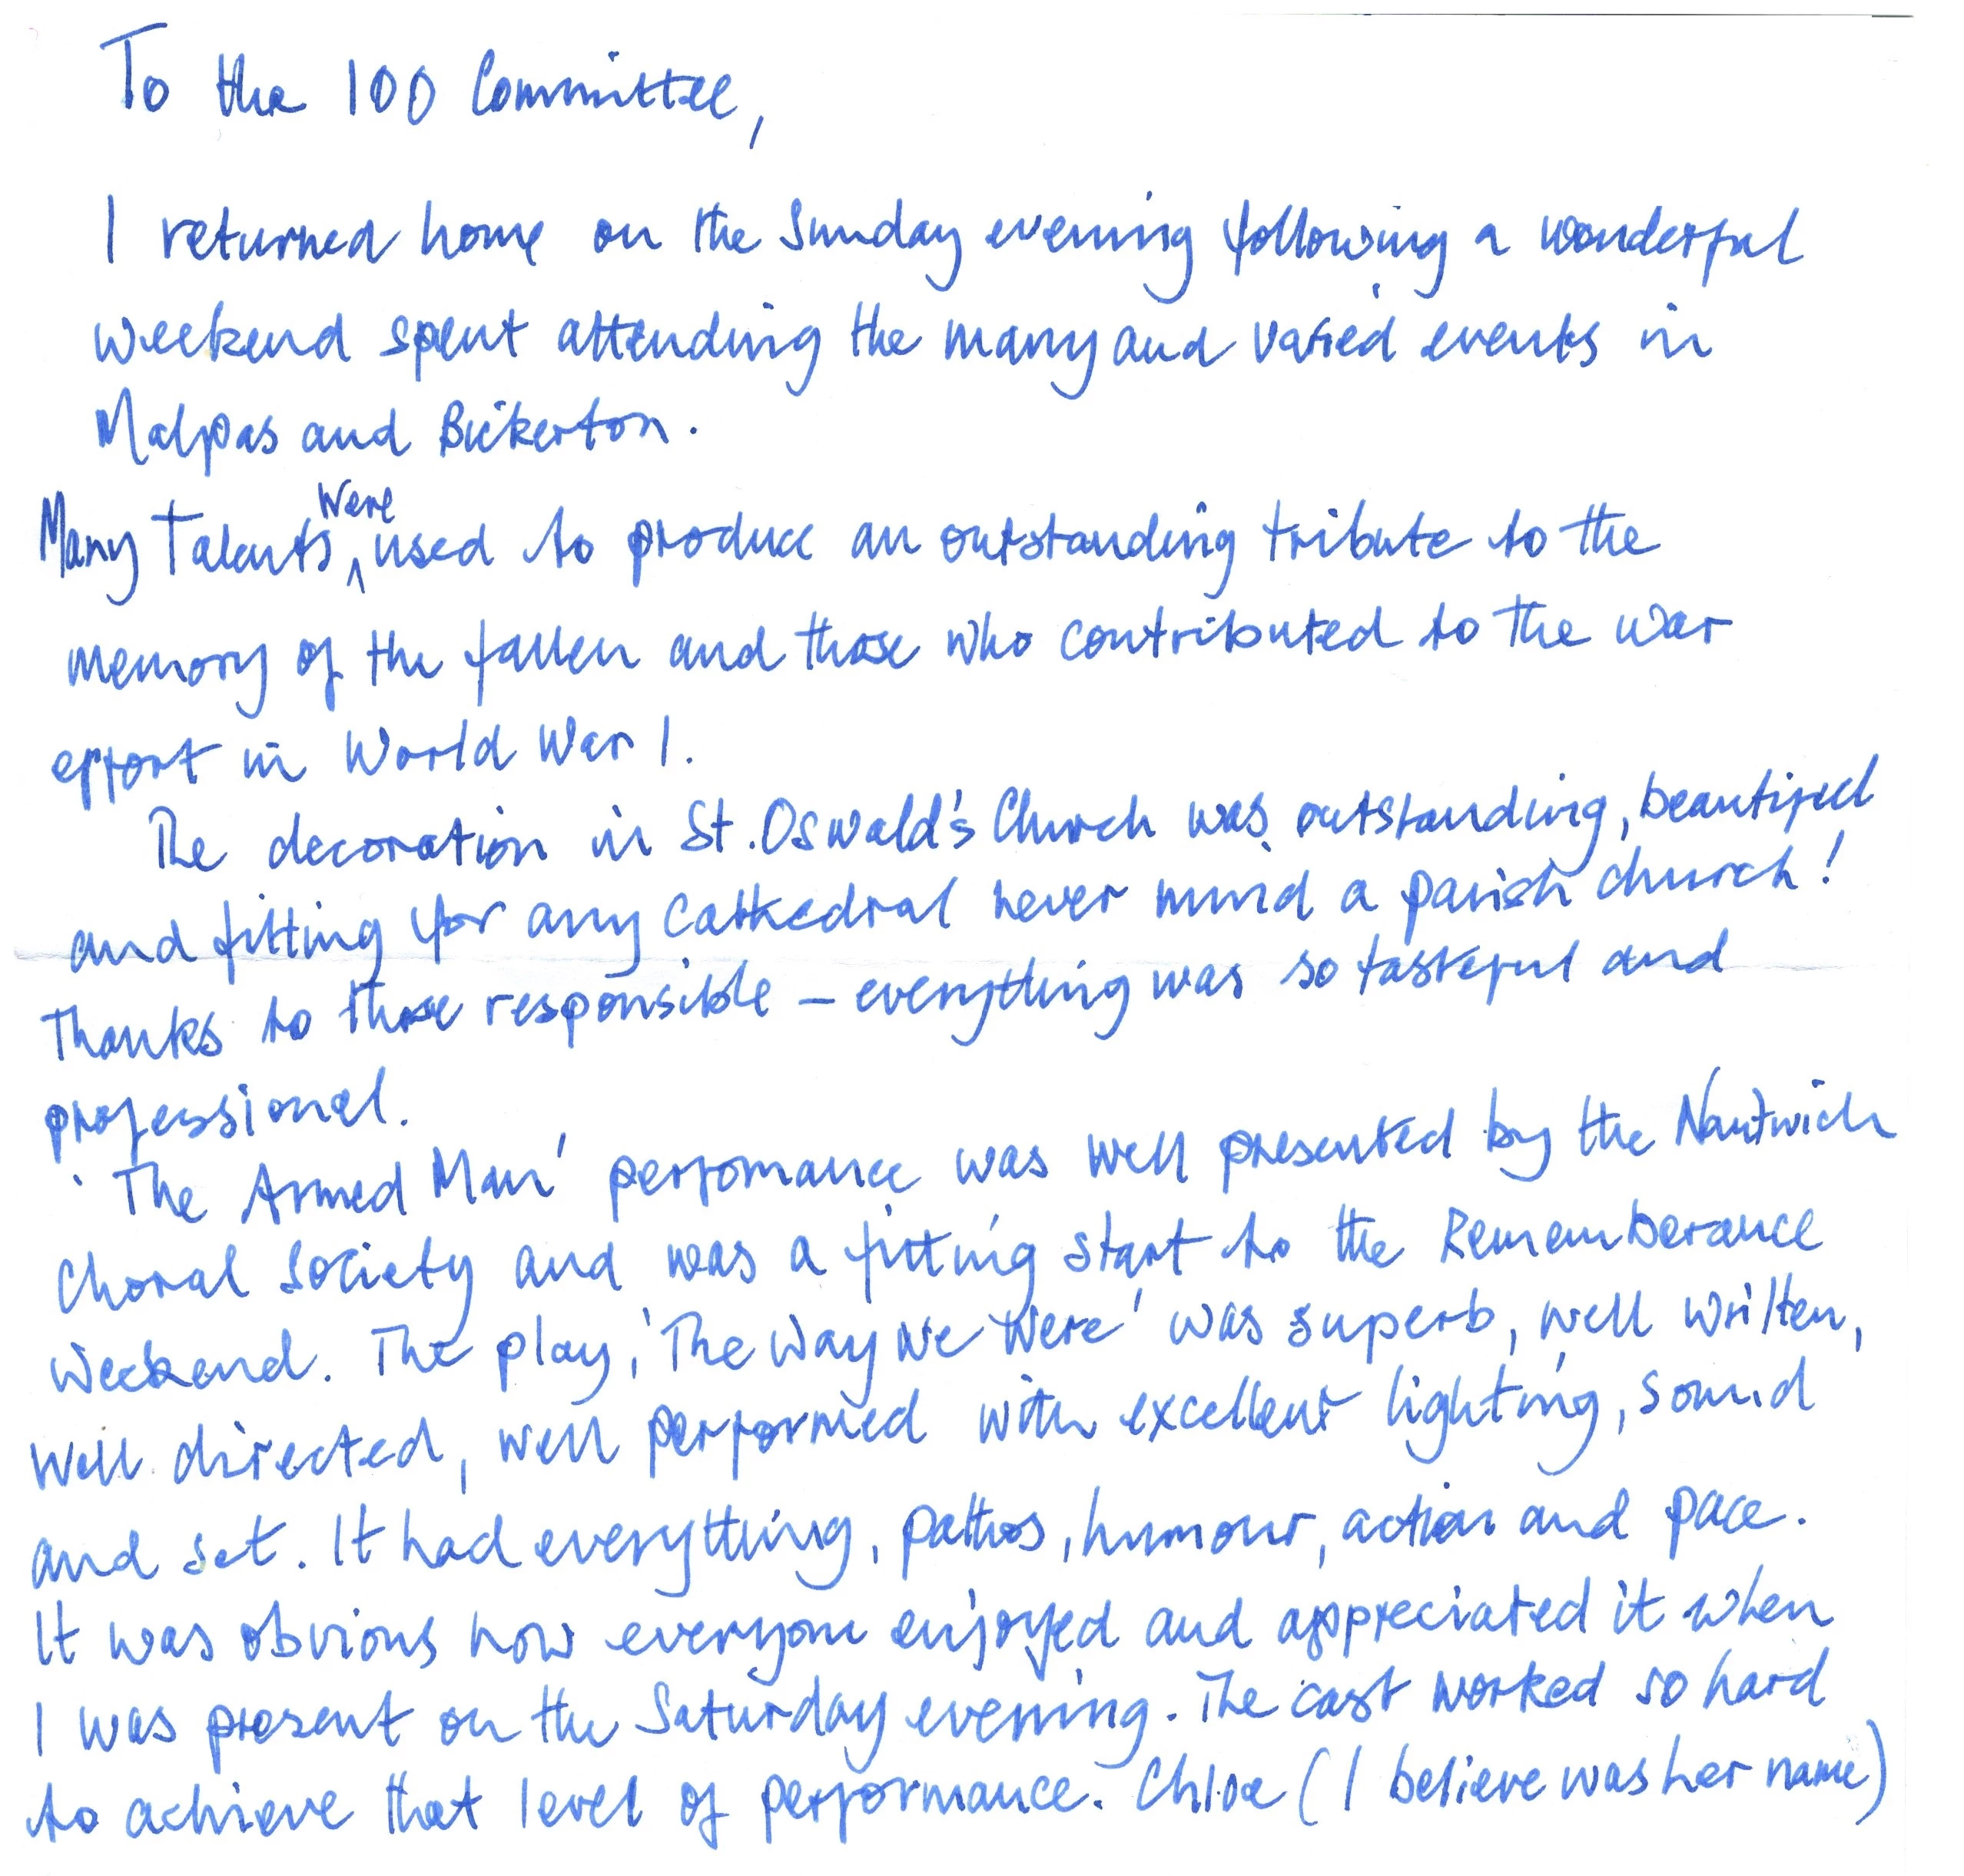 To the 100 Committee,
I returned home on the Sunday evening following a wonderful
weekend spent attending the many and varied events in
Malpas and Bickerton.
Many Talents were used to produce an outstanding tribute to the
memory of the fallen and those who contributed to the war
effort in World War 1.
The decoration in St. Oswald's Church was outstanding, beautiful
and fitting for any Cathedral never mind a parish church!
Thanks to those responsible – everything was so tasteful and
professional.
'The Armed Man' perfomance was well presented by the Nantwich
Choral Society and was a fitting start to the Rememberance
Weekend. The play, 'The Way We Were' was superb, well written,
well directed, well performed with excellent lighting, sound
and set. It had everything, pathos, humour, action and pace.
It was obvious how everyone enjoyed and appreciated it when
I was present on the Saturday evening. The cast worked so hard
to achieve that level of performance. Chloe (I believe was her name)